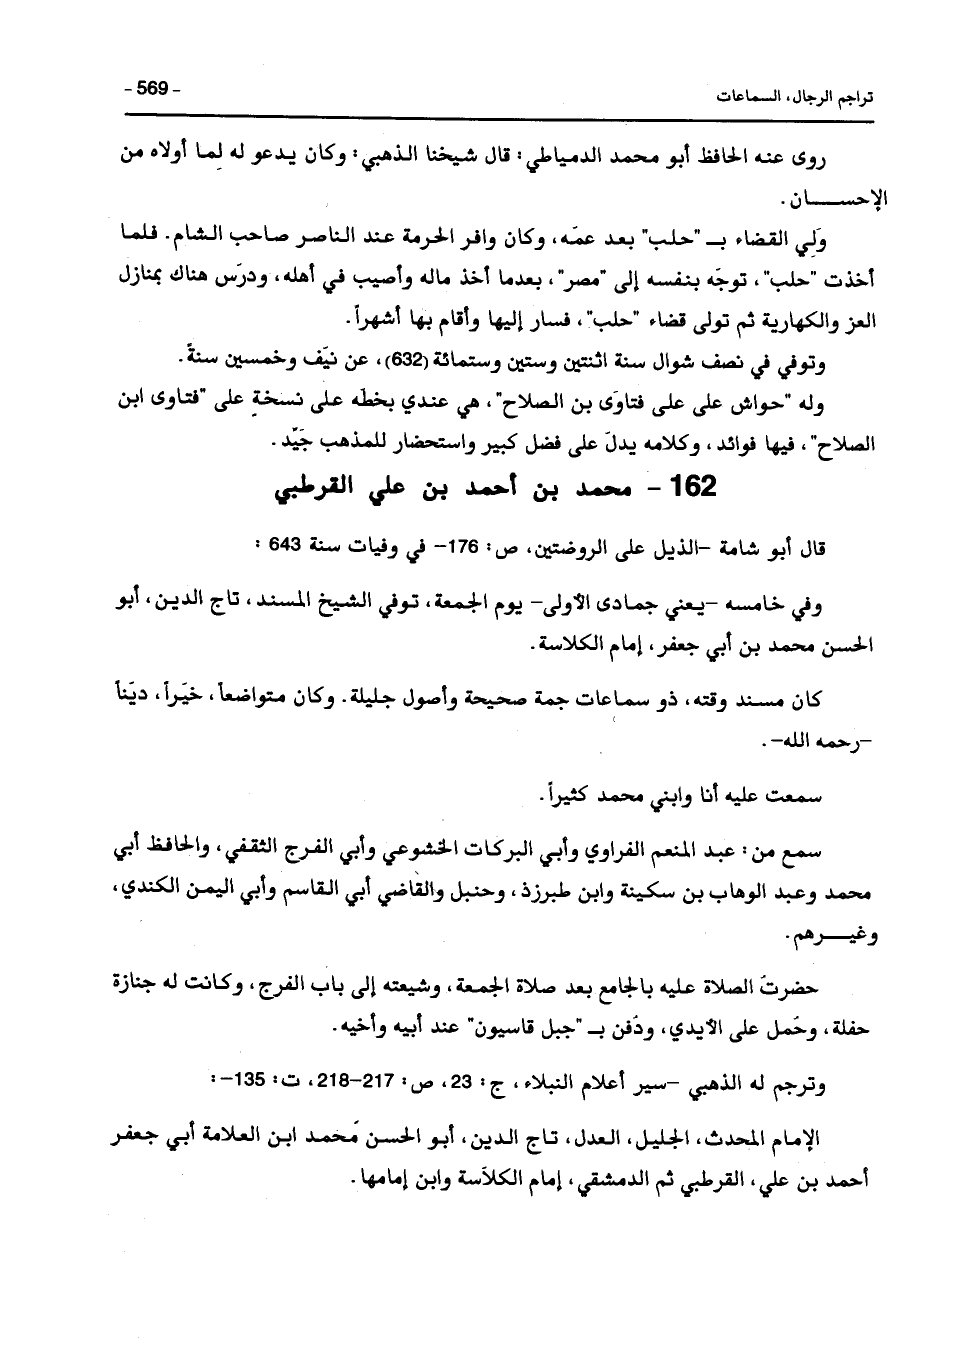 تراجم الرجال، السماعات
- 569 -
روى عنه الحافظ أبو محمد الدمياطي: قال شيخنا الذهبي: وكان يدعو له لما أولاه من
الإحســـــان.
وَلِي القضاء بـ "حلب" بعد عمّه، وكان وافر الحرمة عند الناصر صاحب الشام. فلما
أخذت "حلب"، توجّه بنفسه إلى "مصر"، بعدما أخذ ماله وأصيب في أهله، ودرّس هناك بمنازل
العز والكهارية ثم تولى قضاء "حلب"، فسار إليها وأقام بها أشهراً.
وتوفي في نصف شوال سنة اثنتين وستين وستمائة (632)، عن نيّف وخمسين سنةً.
وله "حواش على على فتاوَى بن الصلاح"، هي عندي بخطّه على نسخة على "فتاوى ابن
الصلاح"، فيها فوائد، وكلامه يدلّ على فضل كبير واستحضار للمذهب جَيِّد.
162 - محمد بن أحمد بن علي القرطبي
قال أبو شامة -الذيل على الروضتين، ص: 176- في وفيات سنة 643 :
وفي خامسه -يعني جمادى الأولى- يوم الجمعة، توفي الشيخ المسند، تاج الدين، أبو
الحسن محمد بن أبي جعفر، إمام الكلاسة.
كان مسند وقته، ذو سماعات جمة صحيحة وأصول جليلة. وكان متواضعاً، خيّراً، ديّناً
-رحمه الله-.
سمعت عليه أنا وابني محمد كثيراً.
سمع من: عبد المنعم الفراوي وأبي البركات الخشوعي وأبي الفرج الثقفي، والحافظ أبي
محمد وعبد الوهاب بن سكينة وابن طبرزذ، وحنبل والقاضي أبي القاسم وأبي اليمن الكندي،
وغيـــرهم.
حضرتَ الصلاة عليه بالجامع بعد صلاة الجمعة، وشيعته إلى باب الفرج، وكانت له جنازة
حفلة، وحُمل على الأيدي، ودُفن بـ "جبل قاسيون" عند أبيه وأخيه.
وترجم له الذهبي -سير أعلام النبلاء، ج: 23، ص: 217-218، ت: 135-:
الإمام المحدث، الجليل، العدل، تاج الدين، أبو الحسن مُحمد ابن العلامة أبي جعفر
أحمد بن علي، القرطبي ثم الدمشقي، إمام الكلاّسة وابن إمامها.